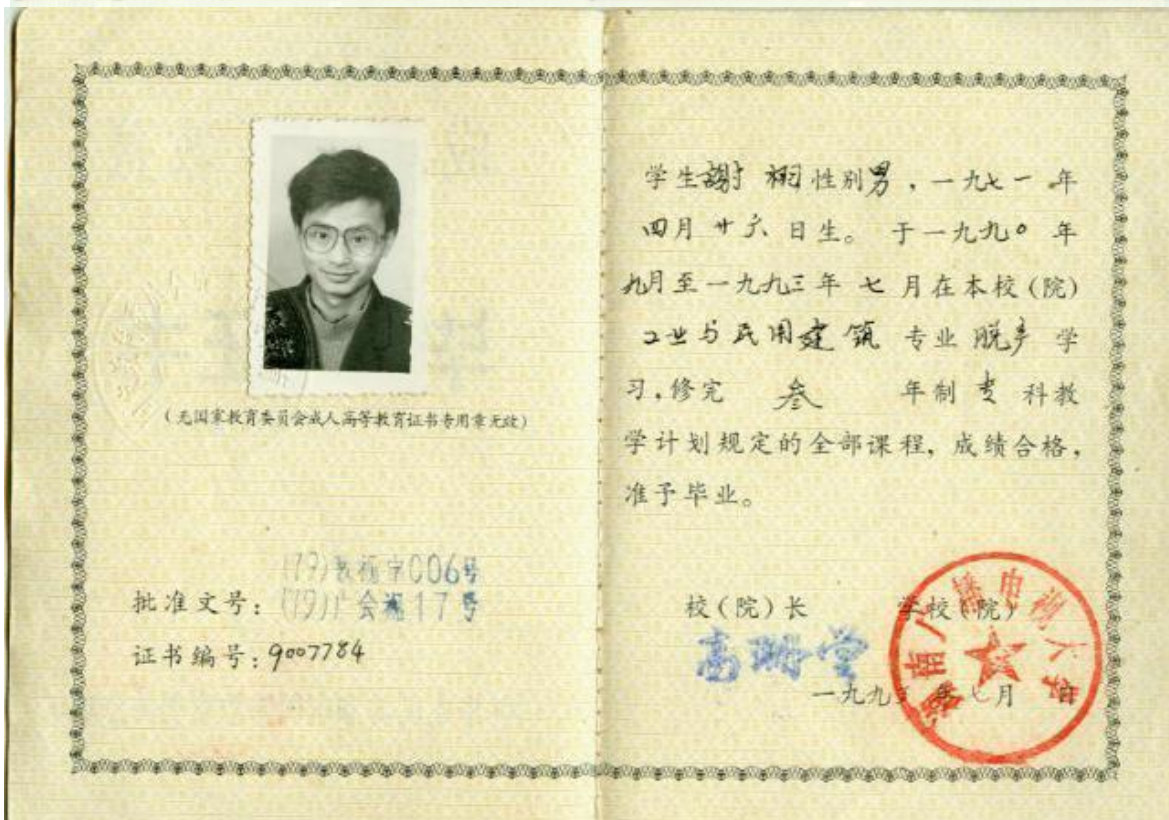 (无国家教育委员会成人高等教育证书专用章无效)
批准文号: (79)教视字006号
(79)广会视17号
证书编号: 9007784
学生謝 栩 性别男，一九七一年
四月廿六日生。于一九九〇年
九月至一九九三年七月在本校(院)
工业与民用建筑 专业 脱产 学
习,修完 叁 年制 专 科教
学计划规定的全部课程, 成绩合格,
准予毕业。
校(院)长 学校(院)
高 堂
湖南广播电视大学
一九九三年七月 日